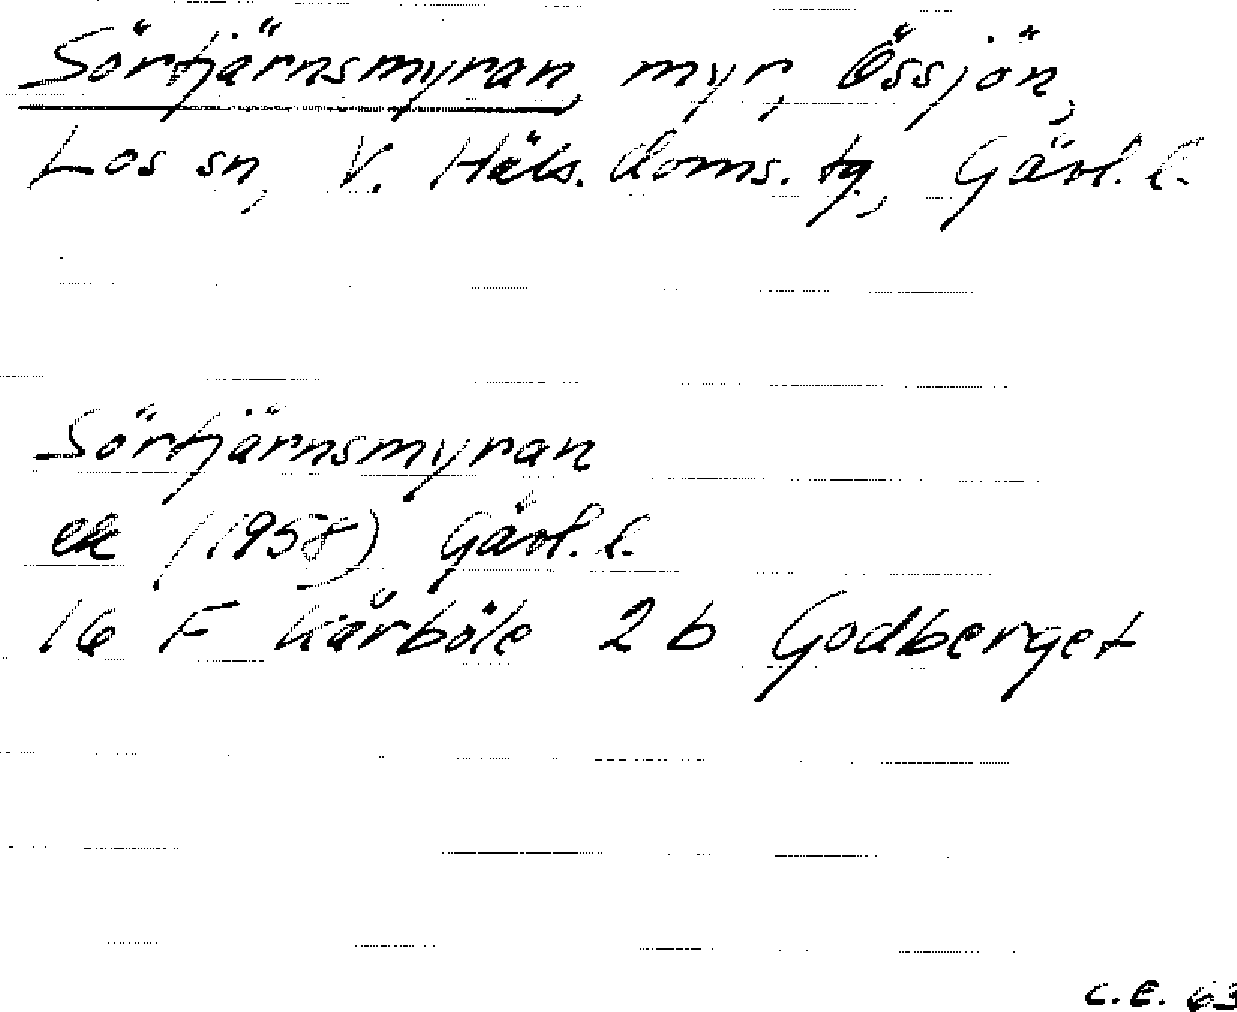 Sörtjärnsmyran, myr, Össjön,
Los sn, V. Häls. doms. tg., Gävl. l.
Sörtjärnsmyran
ek (1958) Gävl. l.
16 F Kårböle 2 b Godberget
C.E. 63